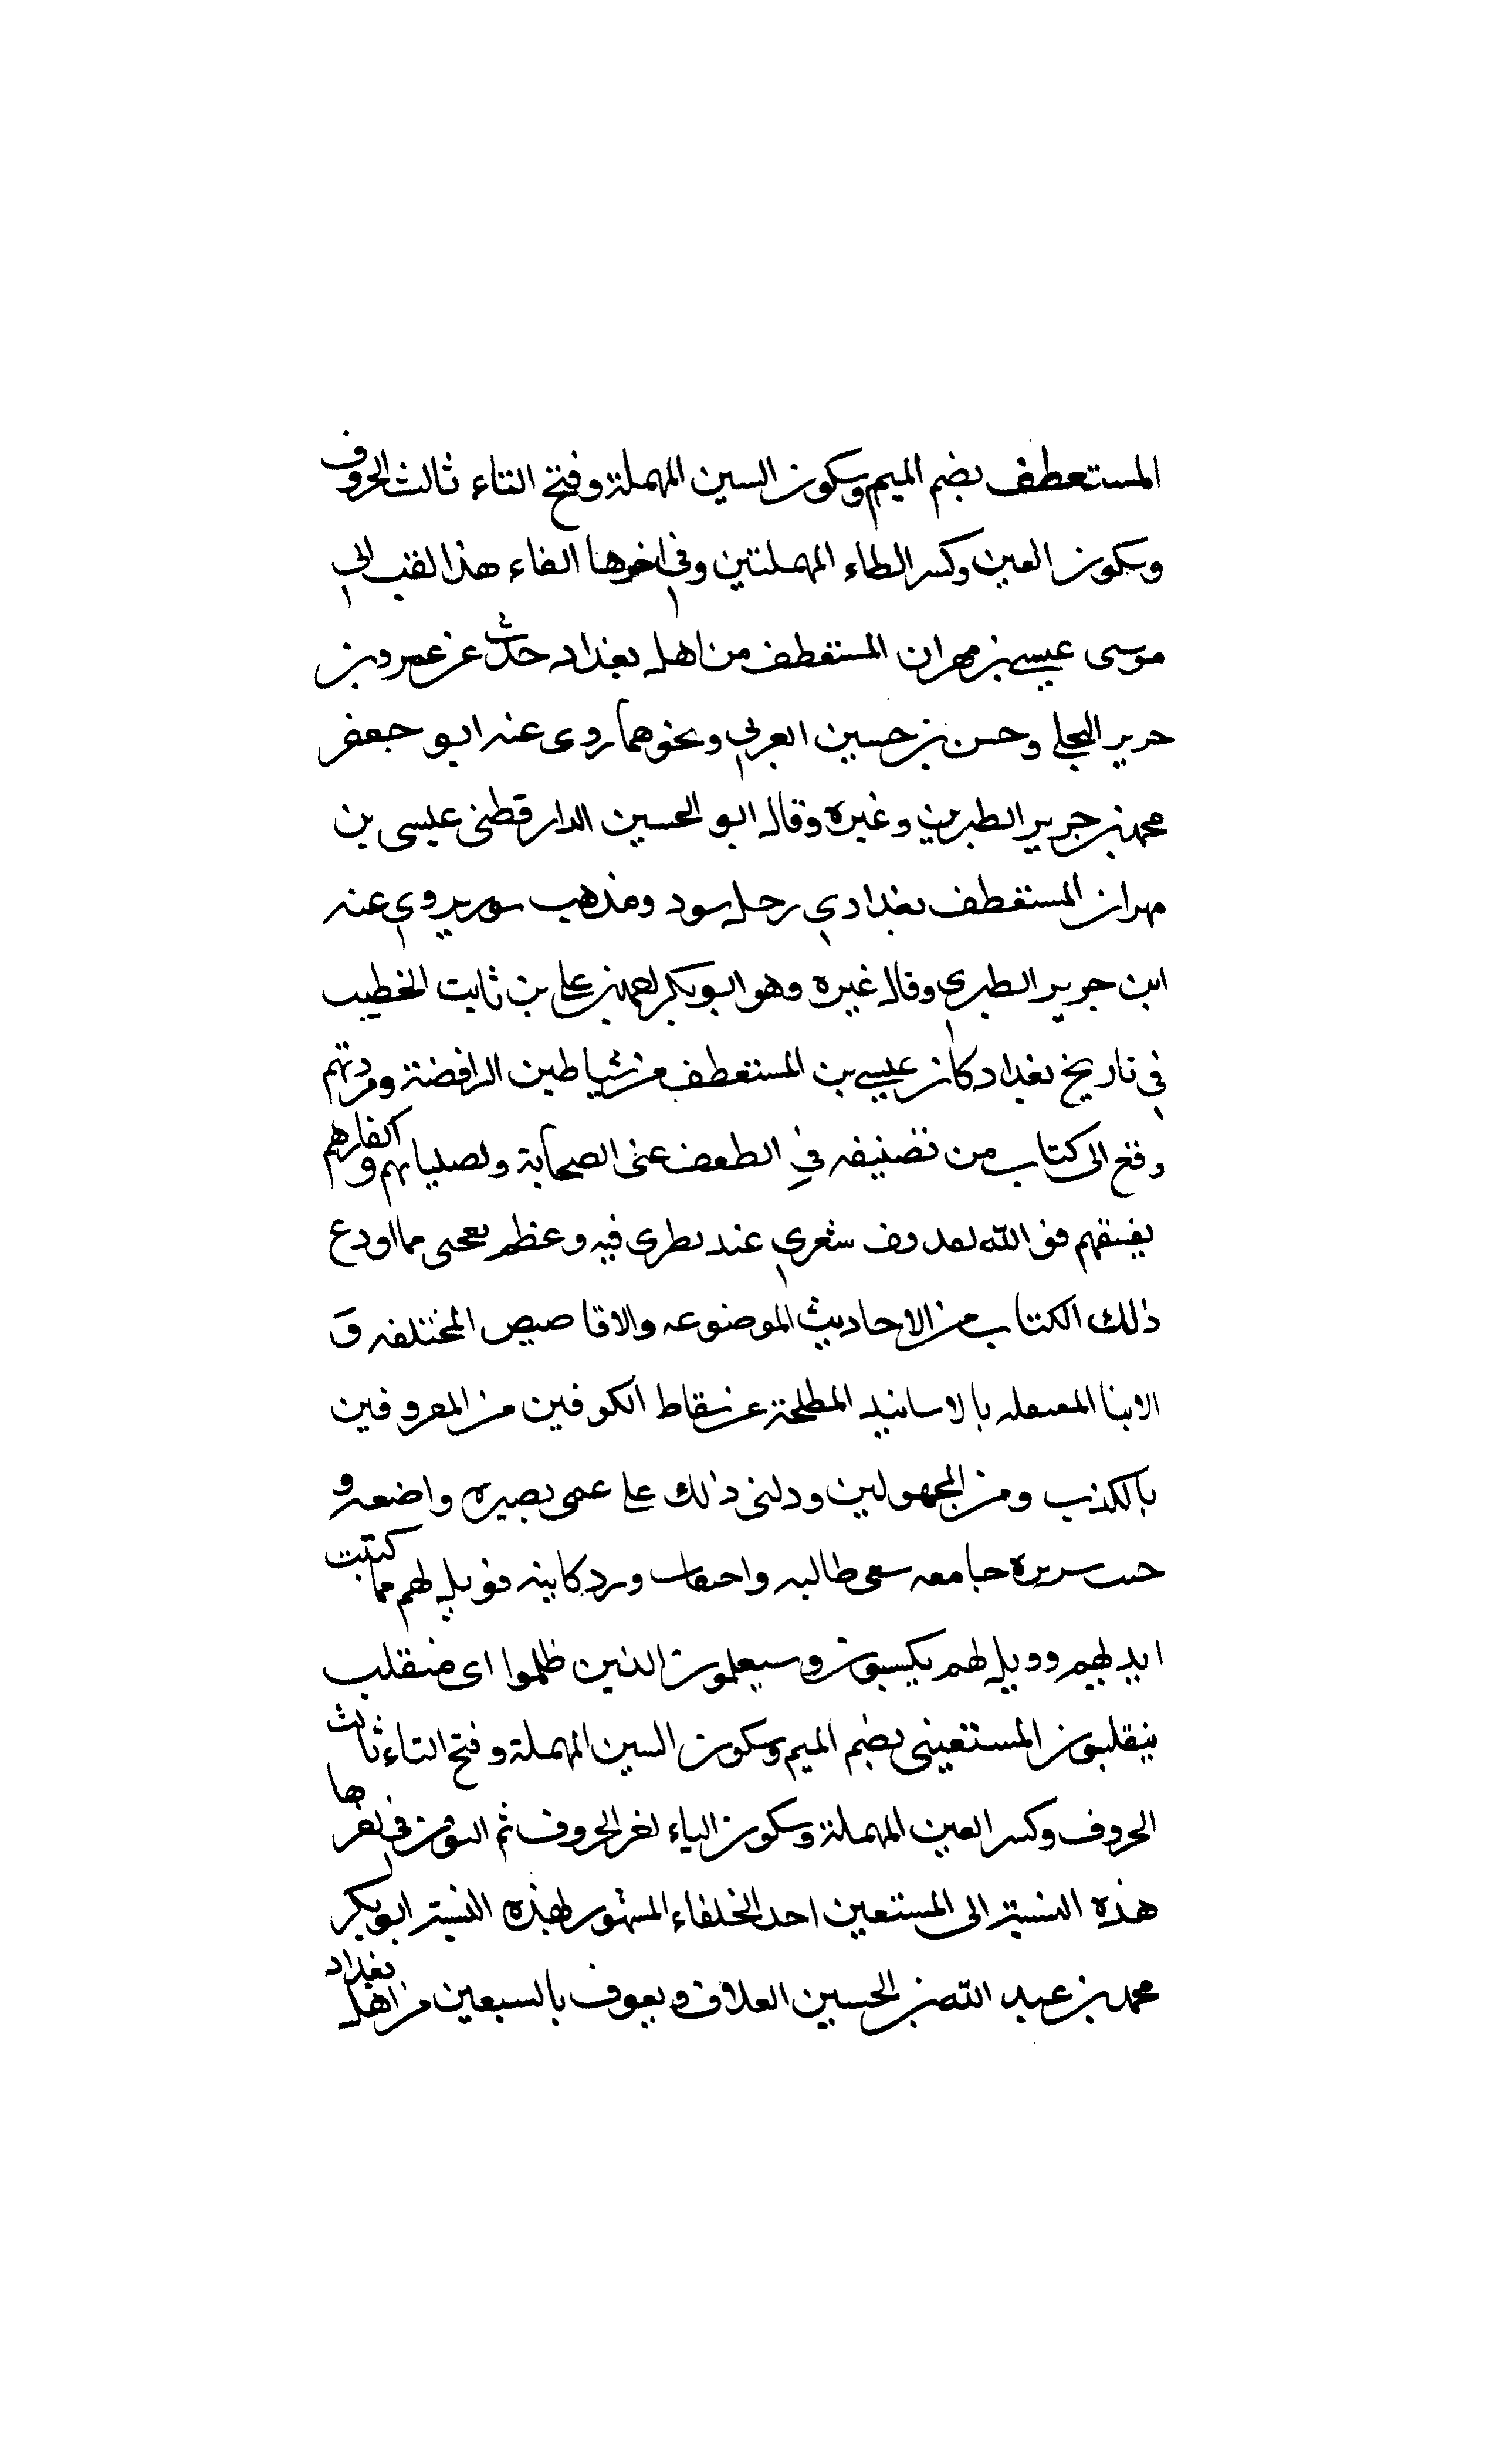 المستعطف بضم الميم وسكون السين المهملة وفتح التاء ثالث الحروف
وسكون العين وكسر الطاء المهملتين وفي اخرها الفاء هذا لقب ابي
موسى عيسى بن مهران المستعطف من اهل بغداد حدث عن عمرو بن
جرير البجلي وحسن بن حسين العربي ونحوهما روى عنه ابو جعفر
محمد بن جرير الطبري وغيره وقال ابو الحسين الدارقطني عيسى بن
مهران المستعطف بغدادي رجل سود ومذهب سو يروي عنه
ابن جرير الطبري وقال غيره وهو ابو بكر احمد بن علي بن ثابت الخطيب
في تاريخ بغداد كان عيسى بن المستعطف من شياطين الرافضة ومردتهم
وقع الى كتاب من تصنيفه في الطعن على الصحابة وتضليلهم و اكفارهم
فوالله لقد وقف شعري عند نظري فيه وعظم تعجبي مما اودع
ذلك الكتاب من الاحاديث الموضوعه والاقاصيص المختلفه و
الانبا المفتعله بالاسانيد المظلمة عن سقاط الكوفين من المعروفين
بالكذب ومن المجهولين ودلني ذلك على عمى بصيره واضعه و
خبث سريرة جامعه سعى طالبه واحتقاب وزر كاتبه فويل لهم مما كتبت
ايديهم وويل لهم يكسبون وسيعلمون الذين ظلموا اي منقلب
ينقلبون المستعيني بضم الميم وسكون السين المهملة وفتح التاء ثالث
الحروف وكسر العين المهملة وسكون الياء اخر الحروف ثم النون في اخرها
هذه النسبة الى المستعين احد الخلفاء المشهور بهذه النسبة ابو بكر
محمد بن عبد الله بن الحسين العلاف ويعرف بالمستعين من اهل بغداد